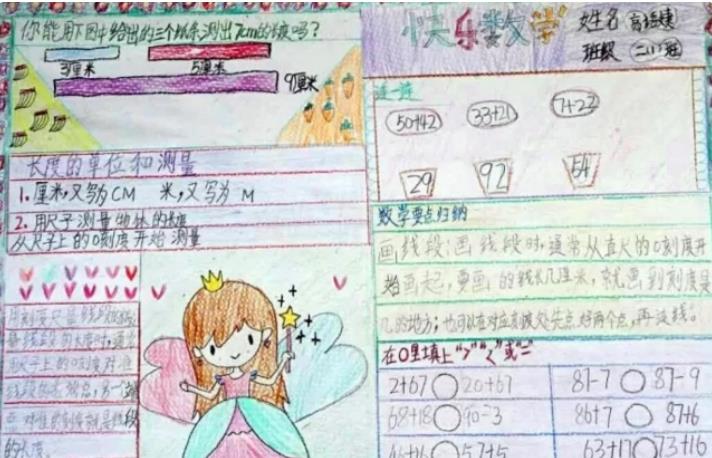 你能用下图中给出的三个纸条测出7cm的长度吗?
3厘米
5厘米
9厘米
长度的单位和测量
1.厘米,又写为CM 米,又写为 M
2.用尺子测量物体的长度
从尺子上的0刻度开始测量
快乐数学
姓名
班级 二(1)班
连一连
50+42 33+21 7+22
29 92 54
数学要点归纳
画线段:画线段时,通常从直尺的0刻度开
始画起,要画的线长几厘米,就画到刻度是
几的地方;也可以在对应刻度处先点好两个点,再连线。
在○里填上">""<"或"="
2+67○20+67 87-7○87-9
68+18○90-3 86+7○87+6
46+16○57+5 63+17○73+16
的长度。